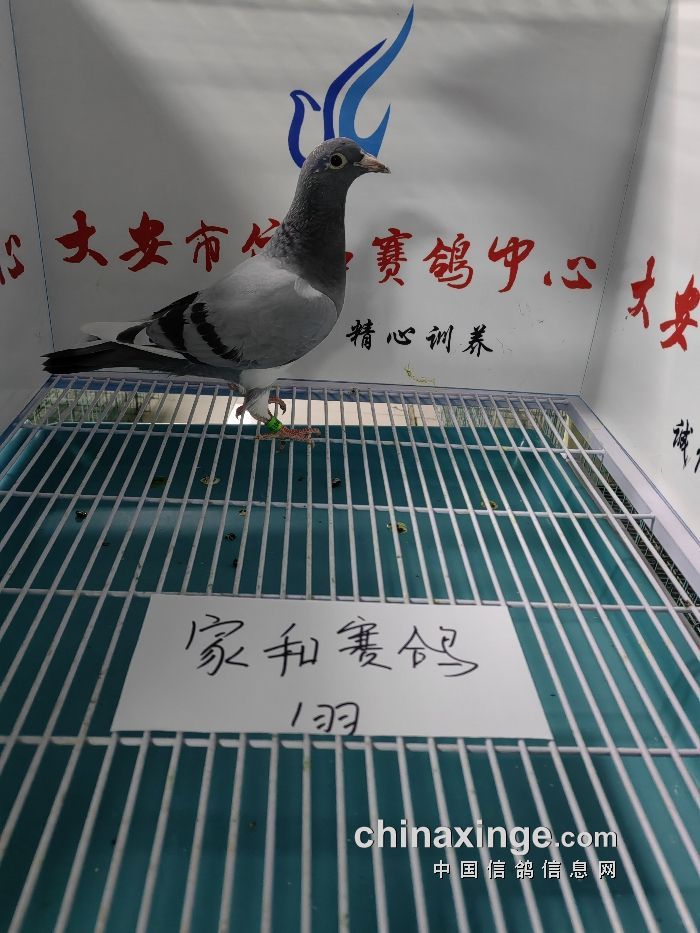 大安市信 赛鸽中心
精心训养
大安
家和赛鸽
1羽
chinaxinge.com
中国信鸽信息网